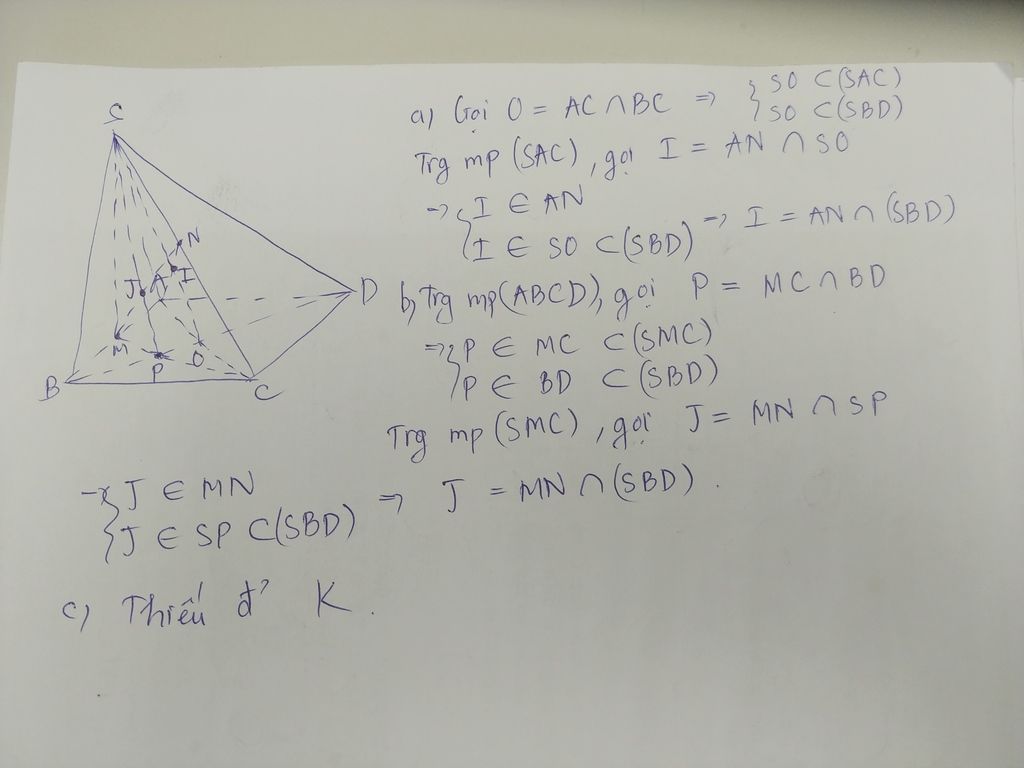 S
N
J
A
I
D
M
P
O
B
C
a) Gọi O = AC ∩ BC => { SO ⊂ (SAC)
{ SO ⊂ (SBD)
Trg mp (SAC), gọi I = AN ∩ SO
=> { I ∈ AN
{ I ∈ SO ⊂ (SBD) => I = AN ∩ (SBD)
b, Trg mp(ABCD), gọi P = MC ∩ BD
=> { P ∈ MC ⊂ (SMC)
{ P ∈ BD ⊂ (SBD)
Trg mp (SMC), gọi J = MN ∩ SP
=> { J ∈ MN
{ J ∈ SP ⊂ (SBD) => J = MN ∩ (SBD).
c) Thiếu đ' K.